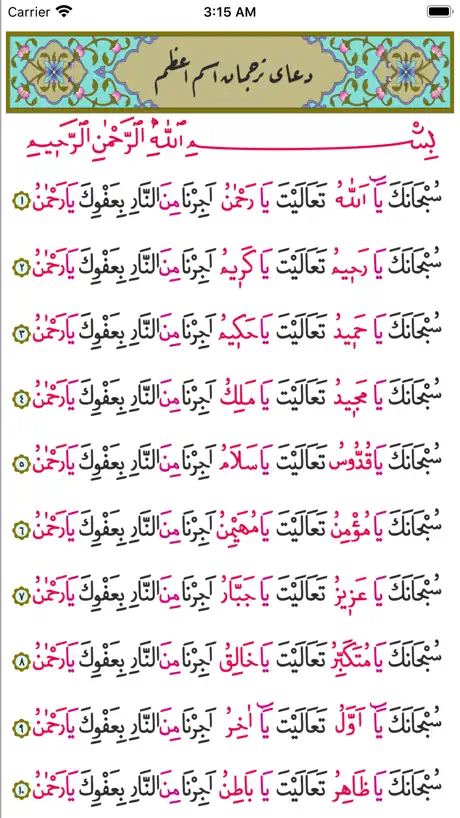 Carrier 3:15 AM
دعای ترجمان اسم اعظم
بِسْمِ اللّٰهِ الرَّحْمٰنِ الرَّحِيمِ
سُبْحَانَكَ يَٓا اَللّٰهُ تَعَالَيْتَ يَا رَحْمٰنُ اَجِرْنَا مِنَ النَّارِ بِعَفْوِكَ يَا رَحْمٰنُ ١
سُبْحَانَكَ يَا رَحِيمُ تَعَالَيْتَ يَا كَرِيمُ اَجِرْنَا مِنَ النَّارِ بِعَفْوِكَ يَا رَحْمٰنُ ٢
سُبْحَانَكَ يَا حَمِيدُ تَعَالَيْتَ يَا حَكِيمُ اَجِرْنَا مِنَ النَّارِ بِعَفْوِكَ يَا رَحْمٰنُ ٣
سُبْحَانَكَ يَا مَجِيدُ تَعَالَيْتَ يَا مَلِكُ اَجِرْنَا مِنَ النَّارِ بِعَفْوِكَ يَا رَحْمٰنُ ٤
سُبْحَانَكَ يَا قُدُّوسُ تَعَالَيْتَ يَا سَلَامُ اَجِرْنَا مِنَ النَّارِ بِعَفْوِكَ يَا رَحْمٰنُ ٥
سُبْحَانَكَ يَا مُؤْمِنُ تَعَالَيْتَ يَا مُهَيْمِنُ اَجِرْنَا مِنَ النَّارِ بِعَفْوِكَ يَا رَحْمٰنُ ٦
سُبْحَانَكَ يَا عَزِيزُ تَعَالَيْتَ يَا جَبَّارُ اَجِرْنَا مِنَ النَّارِ بِعَفْوِكَ يَا رَحْمٰنُ ٧
سُبْحَانَكَ يَا مُتَكَبِّرُ تَعَالَيْتَ يَا خَالِقُ اَجِرْنَا مِنَ النَّارِ بِعَفْوِكَ يَا رَحْمٰنُ ٨
سُبْحَانَكَ يَٓا اَوَّلُ تَعَالَيْتَ يَٓا اٰخِرُ اَجِرْنَا مِنَ النَّارِ بِعَفْوِكَ يَا رَحْمٰنُ ٩
سُبْحَانَكَ يَا ظَاهِرُ تَعَالَيْتَ يَا بَاطِنُ اَجِرْنَا مِنَ النَّارِ بِعَفْوِكَ يَا رَحْمٰنُ ١٠